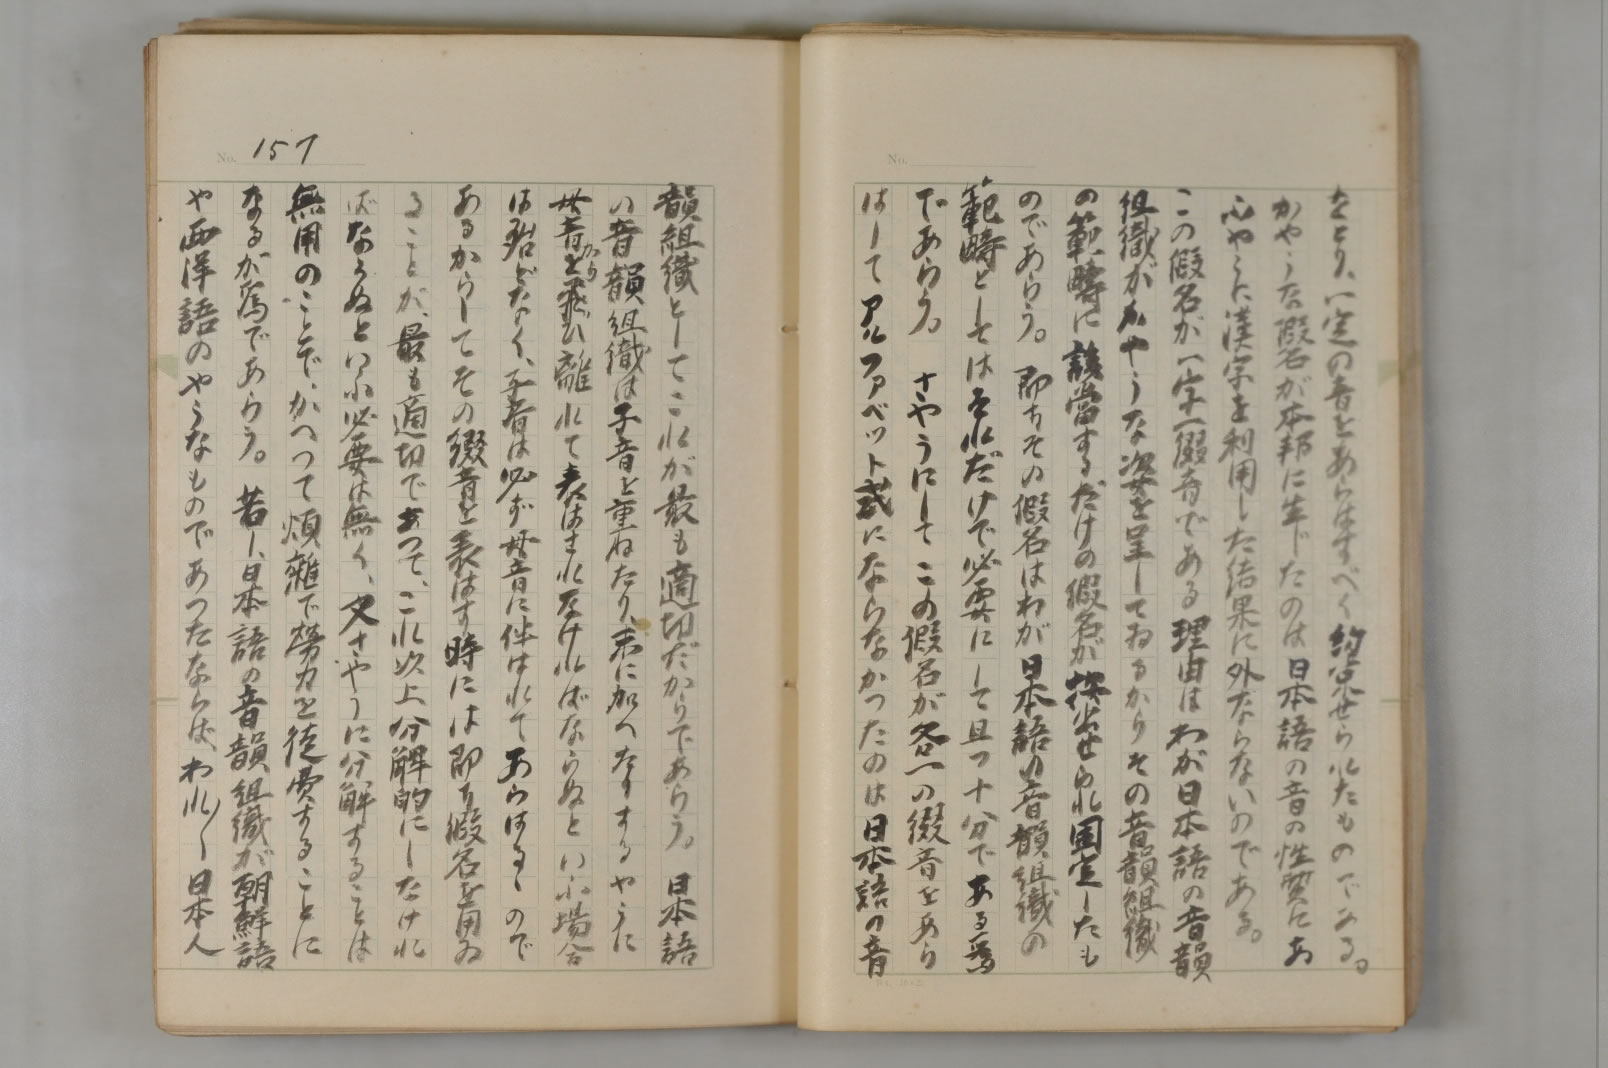 をとり、一定の音をあらはすべく約束せられたものである。
かやうな假名が本邦に生じたのは日本語の音の性質にあ
ふやうに漢字を利用した結果に外ならないのである。
この假名が一字一綴音である理由はわが日本語の音韻
組織がかやうな姿を呈してゐるからその音韻組織
の範疇に該當するだけの假名が撰出せられ固定したも
のであらう。即ちその假名はわが日本語の音韻組織の
範疇としては それだけで必要にして且つ十分である爲
であらう。さやうにしてこの假名が各一の綴音をあら
はしてアルファベット式にならなかつたのは日本語の音
No. 157
韻組織としてこれが最も適切だからであらう。日本語
の音韻組織は子音を重ねたり、末に加へたりするやうに
母音から飛び離れて表はされなければならぬといふ場合
は殆どなく、子音は必ず母音に伴はれてあらはるゝので
あるからしてその綴音を表はす時には即ち假名を用ゐ
ることが、最も適切であつて、これ以上分解的にしなけれ
ばならぬといふ必要は無く、又さやうに分解することは
無用のことで、かへつて煩雜で勞力を徒費することに
なるが爲であらう。若し、日本語の音韻組織が朝鮮語
や西洋語のやうなものであつたならば、われ〳〵日本人
No.